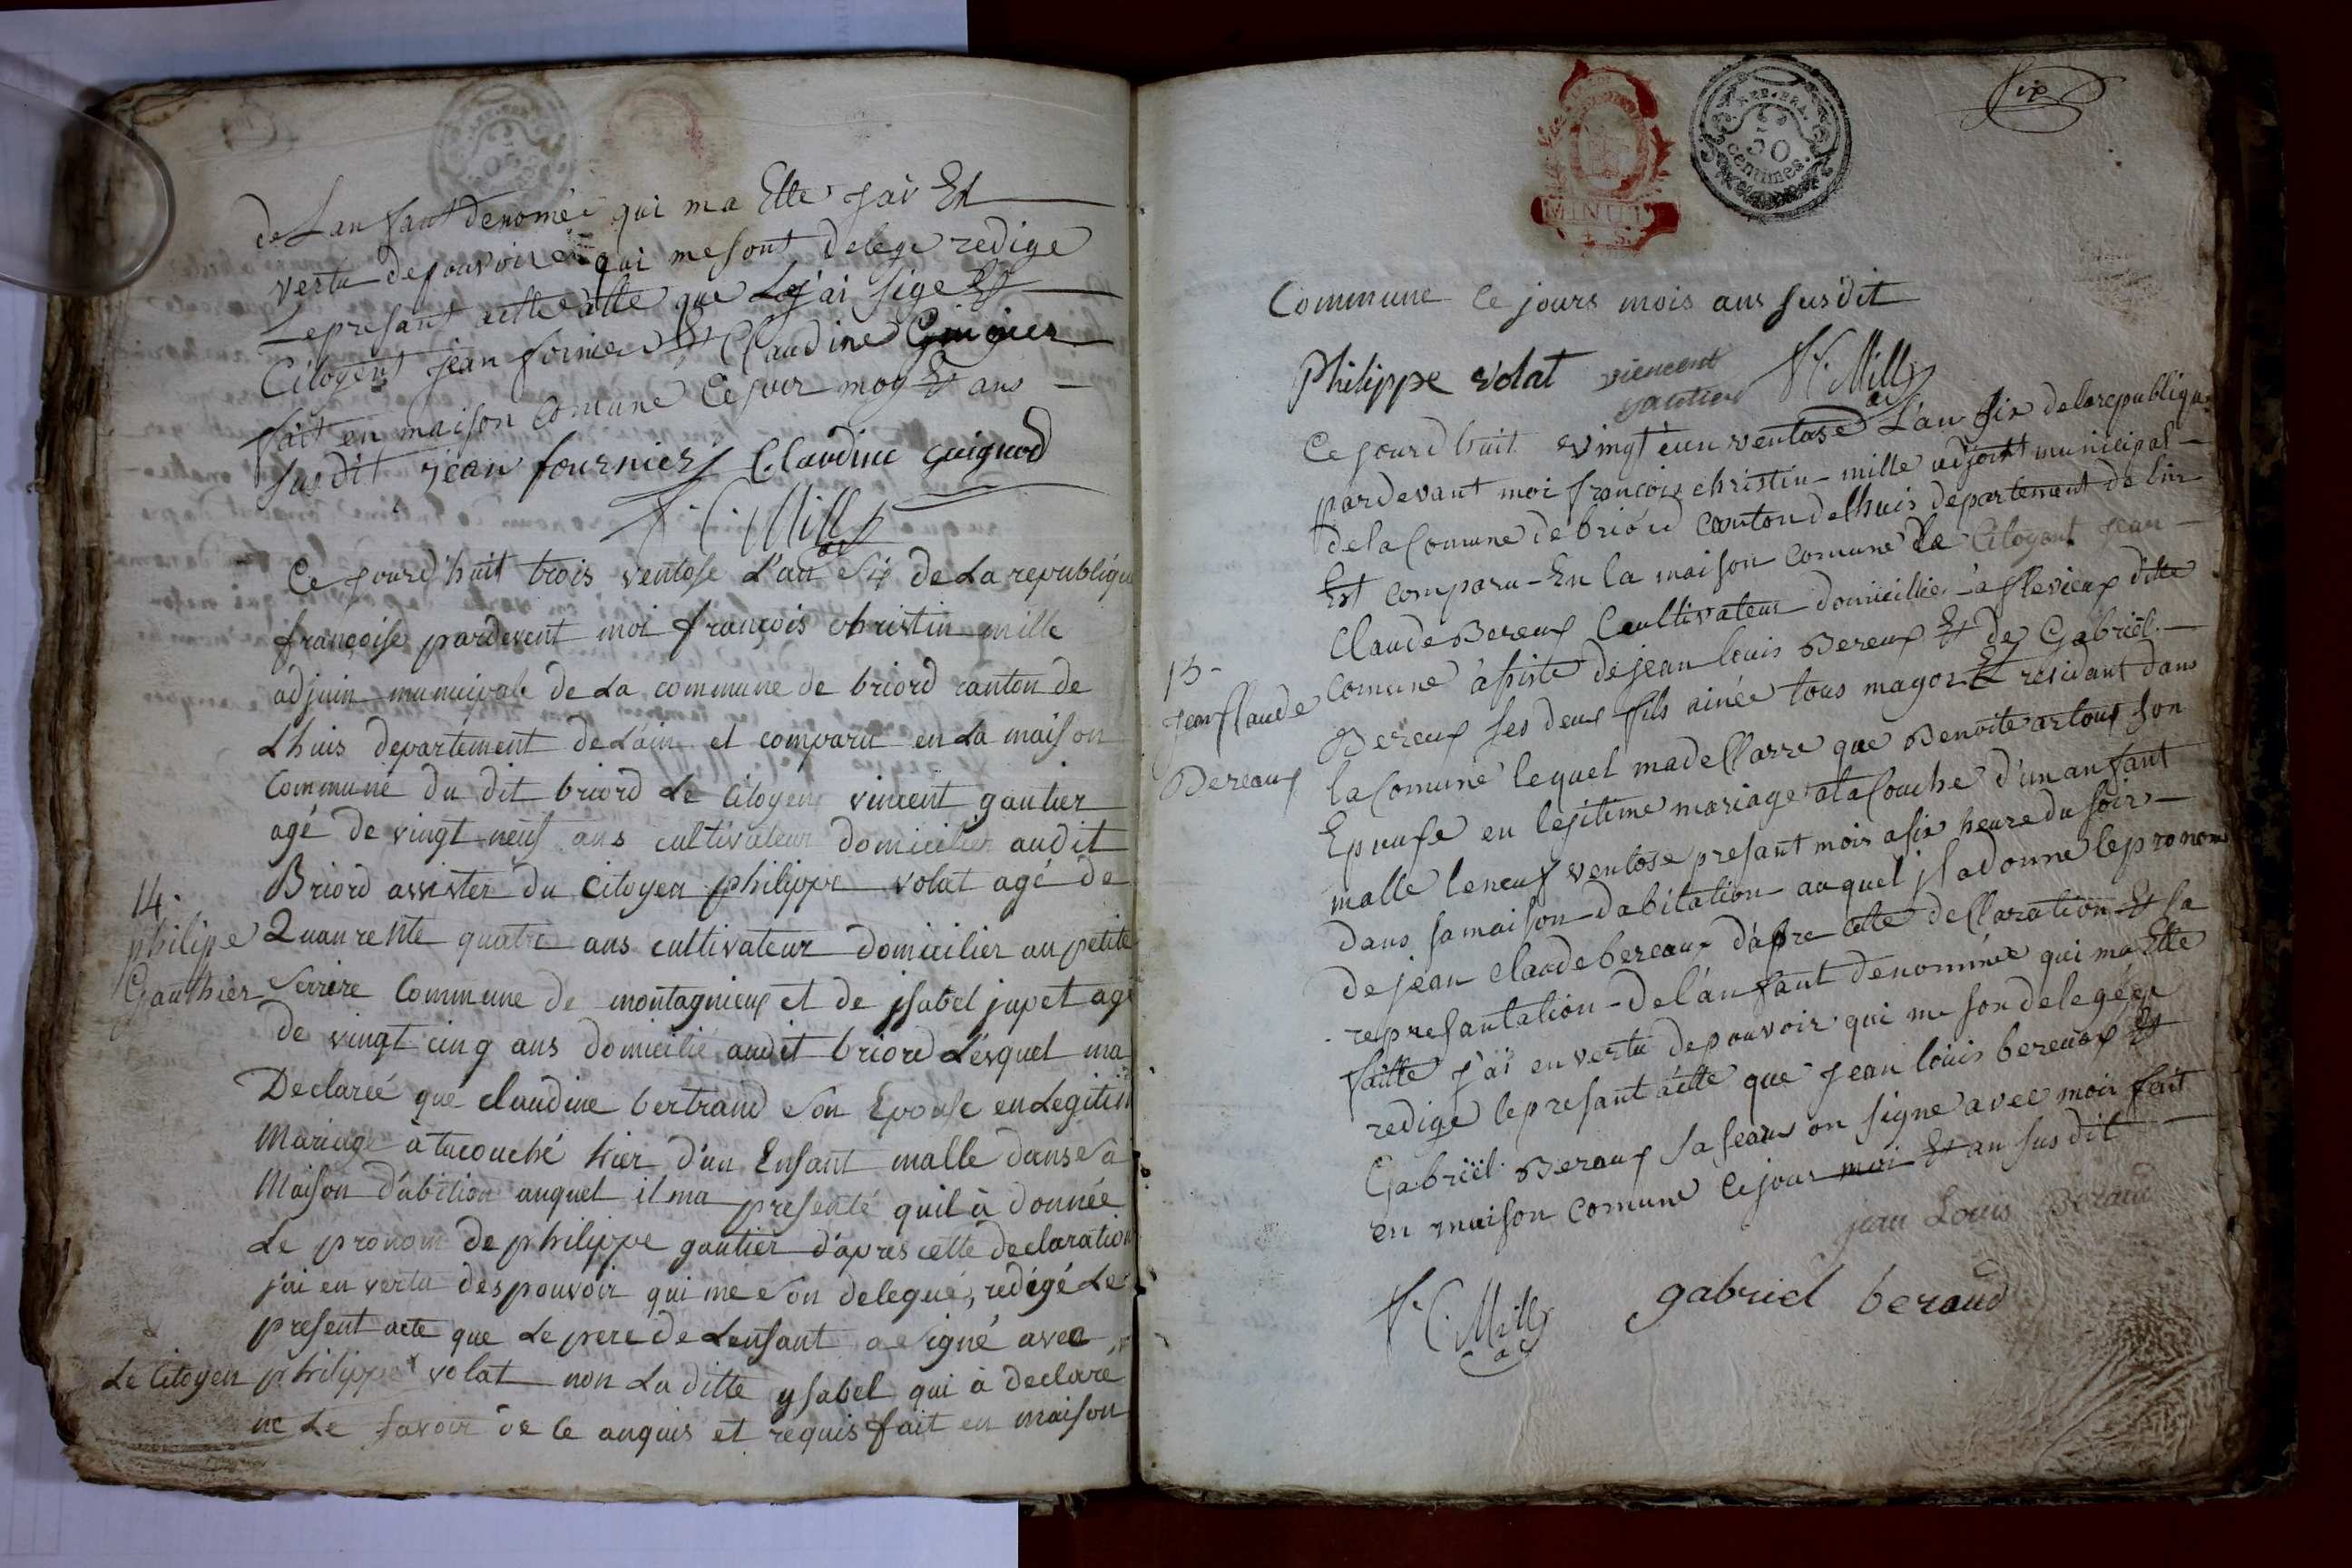 de Lanfant denomée qui ma Ette jai En
vertu de pouvoir qui me sont delege redige
Le presant acte que Lej'ai sige Et
Citoyent jean fornier Et Claudine
fait en maison Comune Ce jour moy Et ans
susdit jean fournier Claudine guignod
f. C. Mille
Ce jourd'huit trois ventose L'an Six de La republique
françoise pardevent moi françois christin mille
adjuin municipale de La commune de briord canton de
Lhuis departement de L'ain et comparu en La maison
Commune du dit briord Le Citoyen vincent gautier
agé de vingt neuf ans cultivateur domicilier audit
Briord assister du Citoyen philippe volat agé de
14.
philipe
Gauthier
Quanrente quatre ans cultivateur domicilier au petite
Serrire Commune de montagnieux et de jsabel jupet agé
de vingt cinq ans domicilié audit briord Lesquel ma
Declareé que claudine bertrand son Epouse en Legitim
Mariage à tacouché hier d'un Enfant malle danse sa
Maison d'abition auquel il ma presenté quil à donnée
Le pronom de philippe gautier d'apres cette declaration
j'ai en vertu des pouvoir qui me son delegué, redégé Le
present acte que Le pere de Lenfant a signé avec
Le Citoyen philippe volat non La ditte ysabel qui à declaré
ne Le savoir de ce anquis et requis fait en maison
Six
REP. FRA.
50
centimes.
MINUTE
Commune Ce jours mois ans susdit
Philippe volat viencent gautier f. C. Mille
Ce jourd huit vingt èun ventose L'an Six de la republique
pardevant moi françois christin mille adjoint municipal
de la Comune de briord Canton de lhuis departement de Lin
Est comparu En la maison comune Le Citoyent jean
Claude Bereux Cultivateur domicilliée à flevieux ditte
15
jean Claude
Bereaux
comune àsiste de jean louis Bereux Et de Gabriël
Bereux ses deux fils ainée tous magor Et residant dans
la Comune lequel ma dellarre que Benoite artoux son
Epeuse en legitime mariage ata Couche d'un anfant
malle le neuf ventose presant mois a six heure du soir
dans sa maison dabitation auquel jl a donne le pronom
de jean claude bereaux d'apre cete dellaration Et la
represantation de l'anfant denommée qui ma Ette
faitte j'ai en vertu de pouvoir qui me son delegéer
redige le presant acte que jean louis bereaux Et
Gabriël Beraux sa seaux on signe avec moi fait
en maison comune Ce jour moi Et an sus dit
jean Louis Beraud
f. C. Mille gabriel beraud